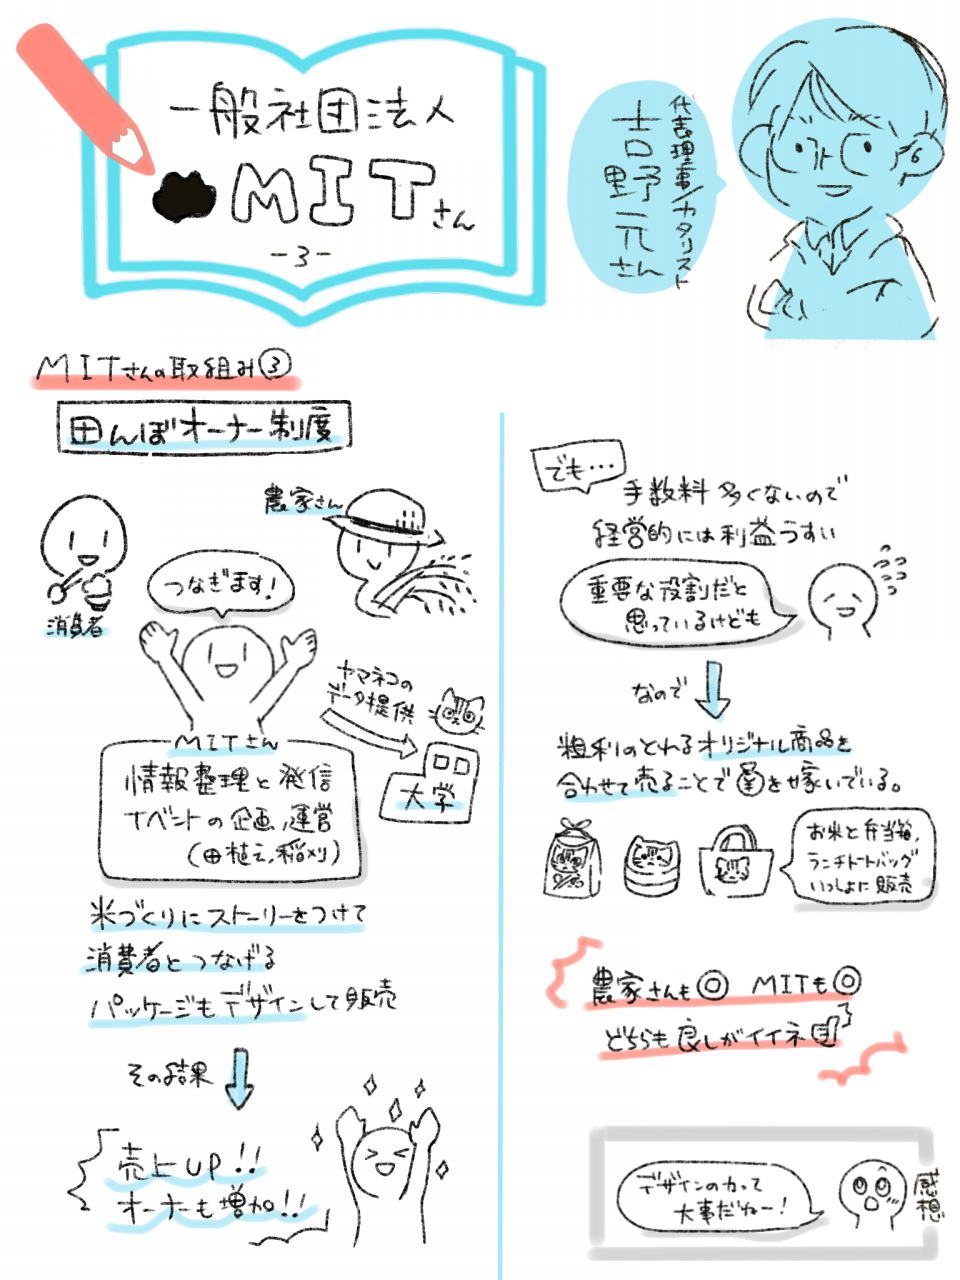 一般社団法人
MITさん
-3-
代表理事/カタリスト
吉野 元さん
MITさんの取組み③
田んぼオーナー制度
農家さん
消費者
つなぎます!
ヤマネコの
データ提供
大学
MITさん
情報整理と発信
イベントの企画,運営
(田植え,稲刈)
米づくりにストーリーをつけて
消費者とつなげる
パッケージもデザインして販売
その結果
売上UP!!
オーナーも増加!!
でも…
手数料多くないので
経営的には利益うすい
重要な役割だと
思っているけども
なので
粗利のとれるオリジナル商品を
合わせて売ることで
を稼いでいる。
お米と弁当箱,
ランチトートバッグ
いっしょに販売
農家さんも◎ MITも◎
どちらも良しがイイネ
デザインの力って
大事だねー!
感想